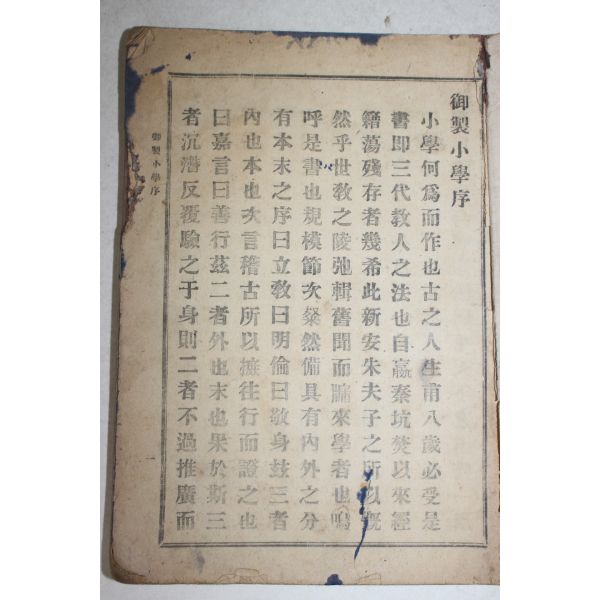 御製小學序
小學何爲而作也古之人生甫八歲必受是
書即三代敎人之法也自嬴秦坑焚以來經
籍蕩殘存者幾希此新安朱夫子之所以慨
然乎世敎之陵弛輯舊聞而牖來學者也嗚
呼是書也規模節次粲然備具有內外之分
有本末之序曰立敎曰明倫曰敬身玆三者
內也本也次言稽古所以摭往行而證之也
曰嘉言曰善行玆二者外也末也果於斯三
者沉潛反覆驗之于身則二者不過推廣而
御製小學序